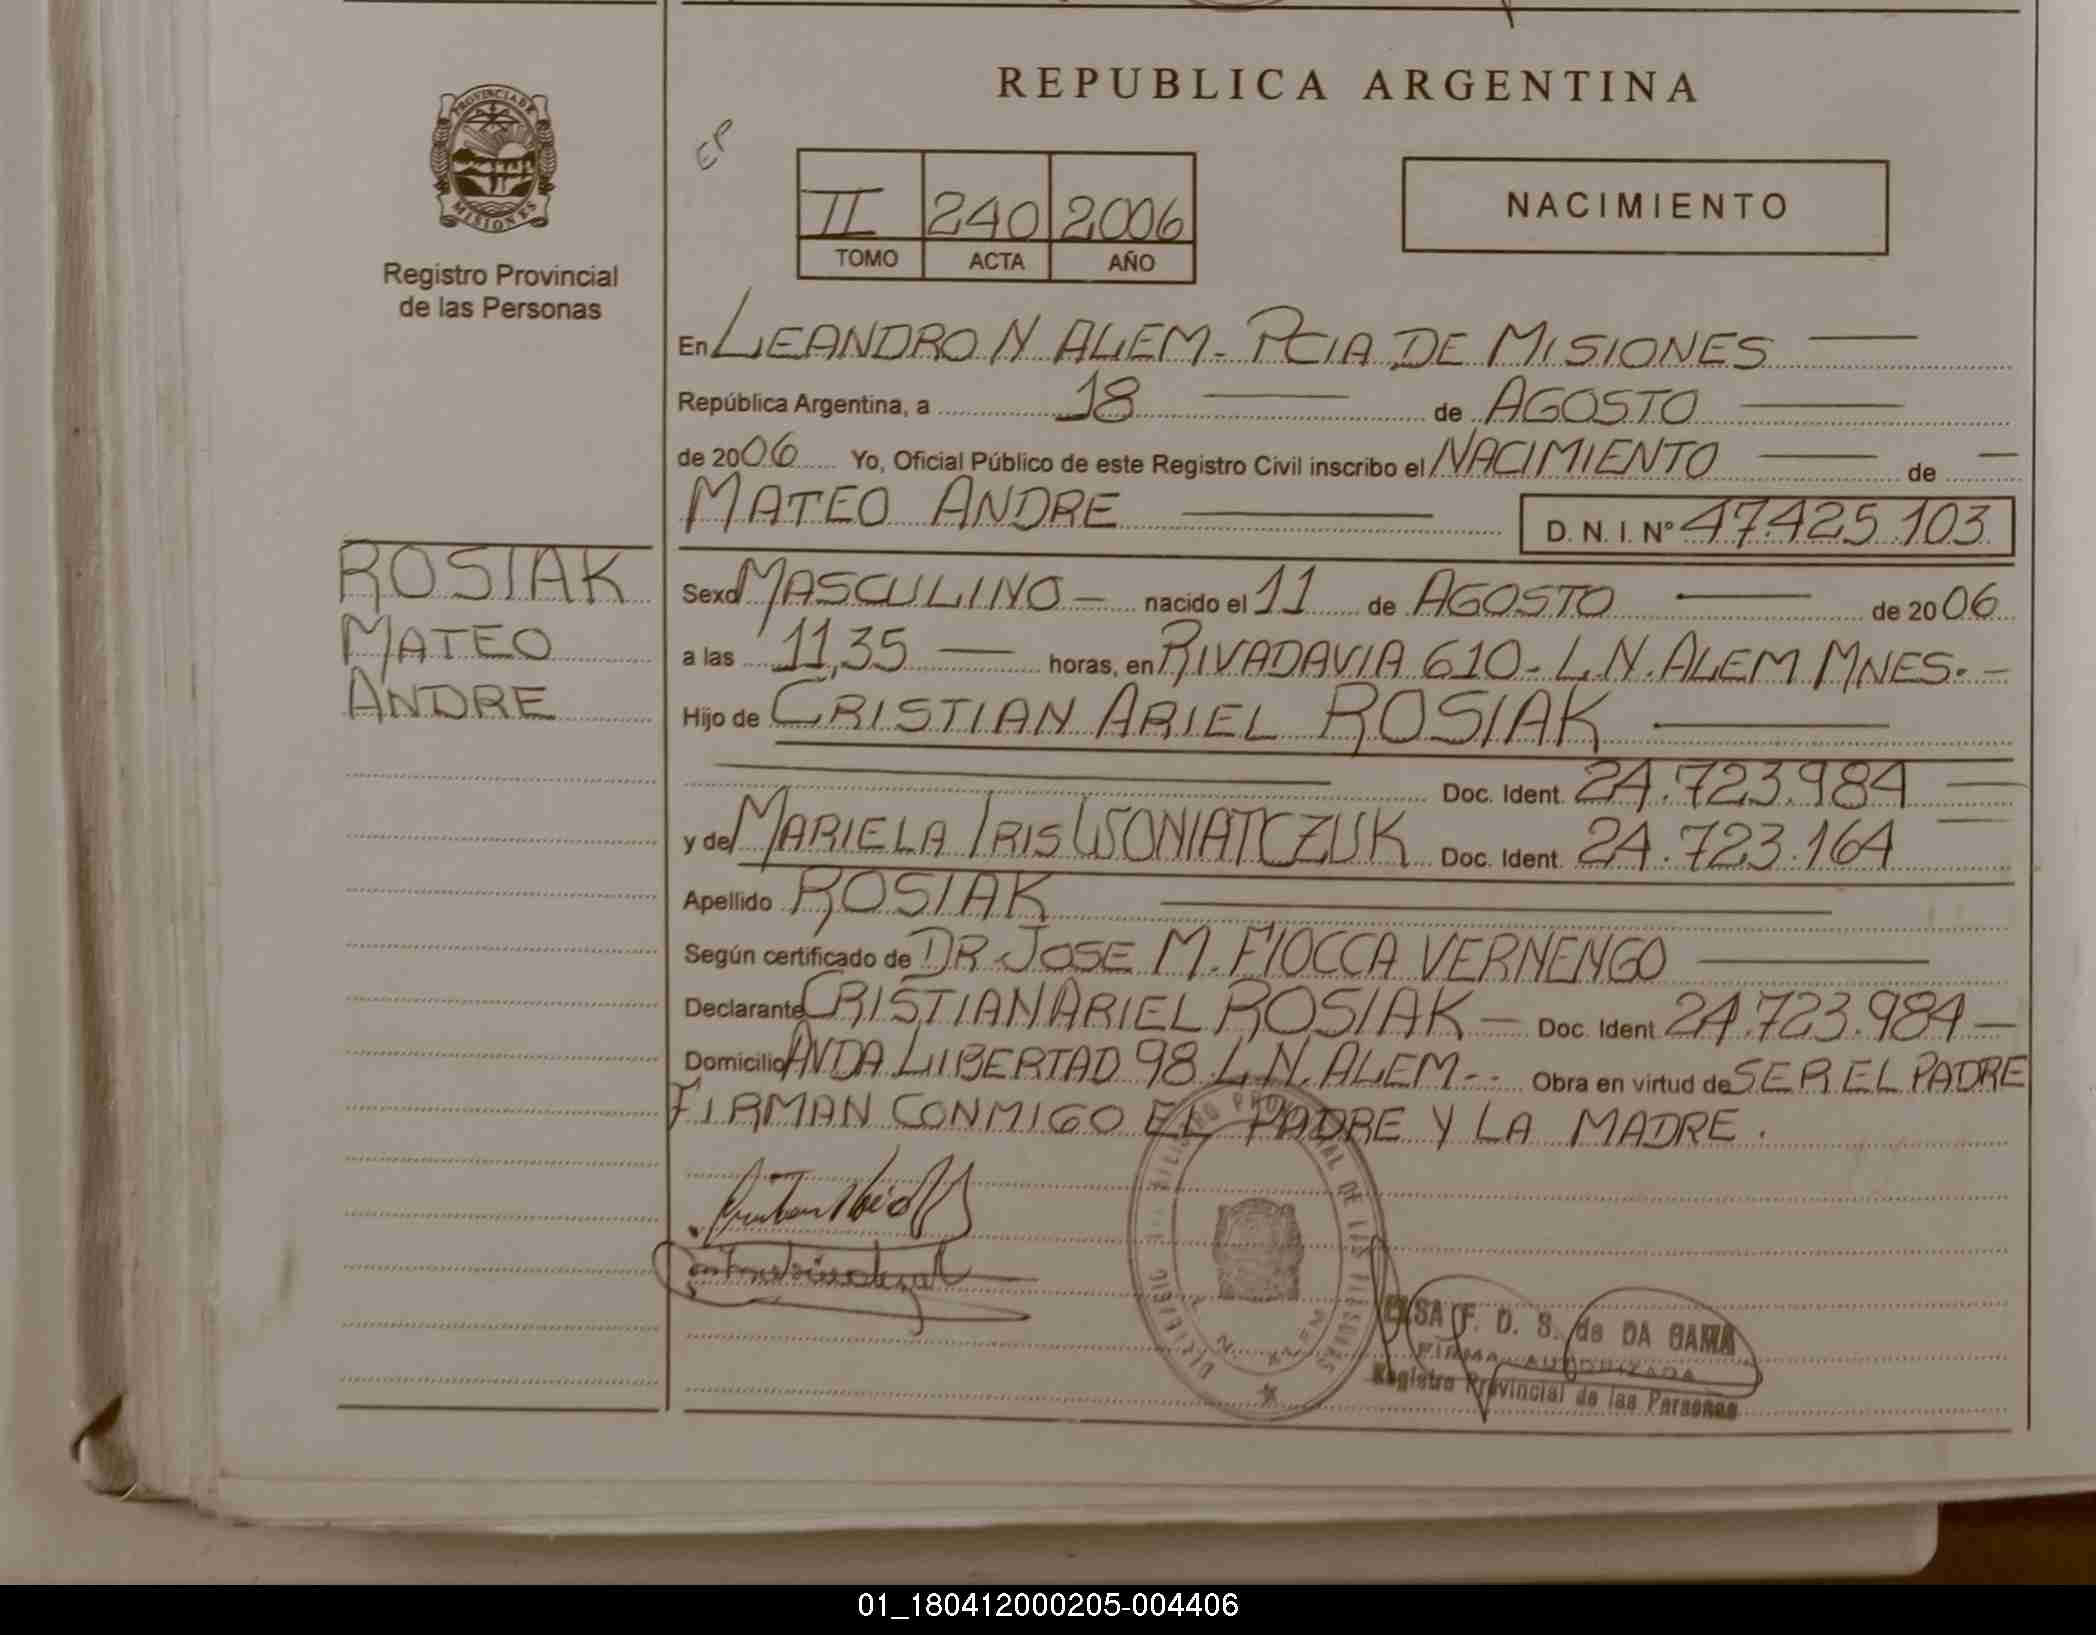 REPUBLICA ARGENTINA
PROVINCIA DE
MISIONES
Registro Provincial
de las Personas
EP
II 240 2006
TOMO ACTA AÑO
NACIMIENTO
En LEANDRO N ALEM - PCIA DE MISIONES
República Argentina, a 18 de AGOSTO
de 2006 Yo, Oficial Público de este Registro Civil inscribo el NACIMIENTO de
MATEO ANDRE D. N. I. Nº 47.425.103
ROSIAK
MATEO
ANDRE
Sexo MASCULINO - nacido el 11 de AGOSTO de 2006
a las 11,35 horas, en RIVADAVIA 610 - L.N. ALEM MNES. -
Hijo de CRISTIAN ARIEL ROSIAK
Doc. Ident. 24.723.984
y de MARIELA IRIS WONIATCZUK Doc. Ident. 24.723.164
Apellido ROSIAK
Según certificado de DR JOSE M. FIOCCA VERNENGO
Declarante CRISTIAN ARIEL ROSIAK - Doc. Ident. 24.723.984 -
Domicilio AVDA LIBERTAD 98 L.N. ALEM - - Obra en virtud de SER EL PADRE
FIRMAN CONMIGO EL PADRE Y LA MADRE.
ELSA F. D. S. de DA GAMA
FIRMA AUTORIZADA
Registro Provincial de las Personas
01_180412000205-004406